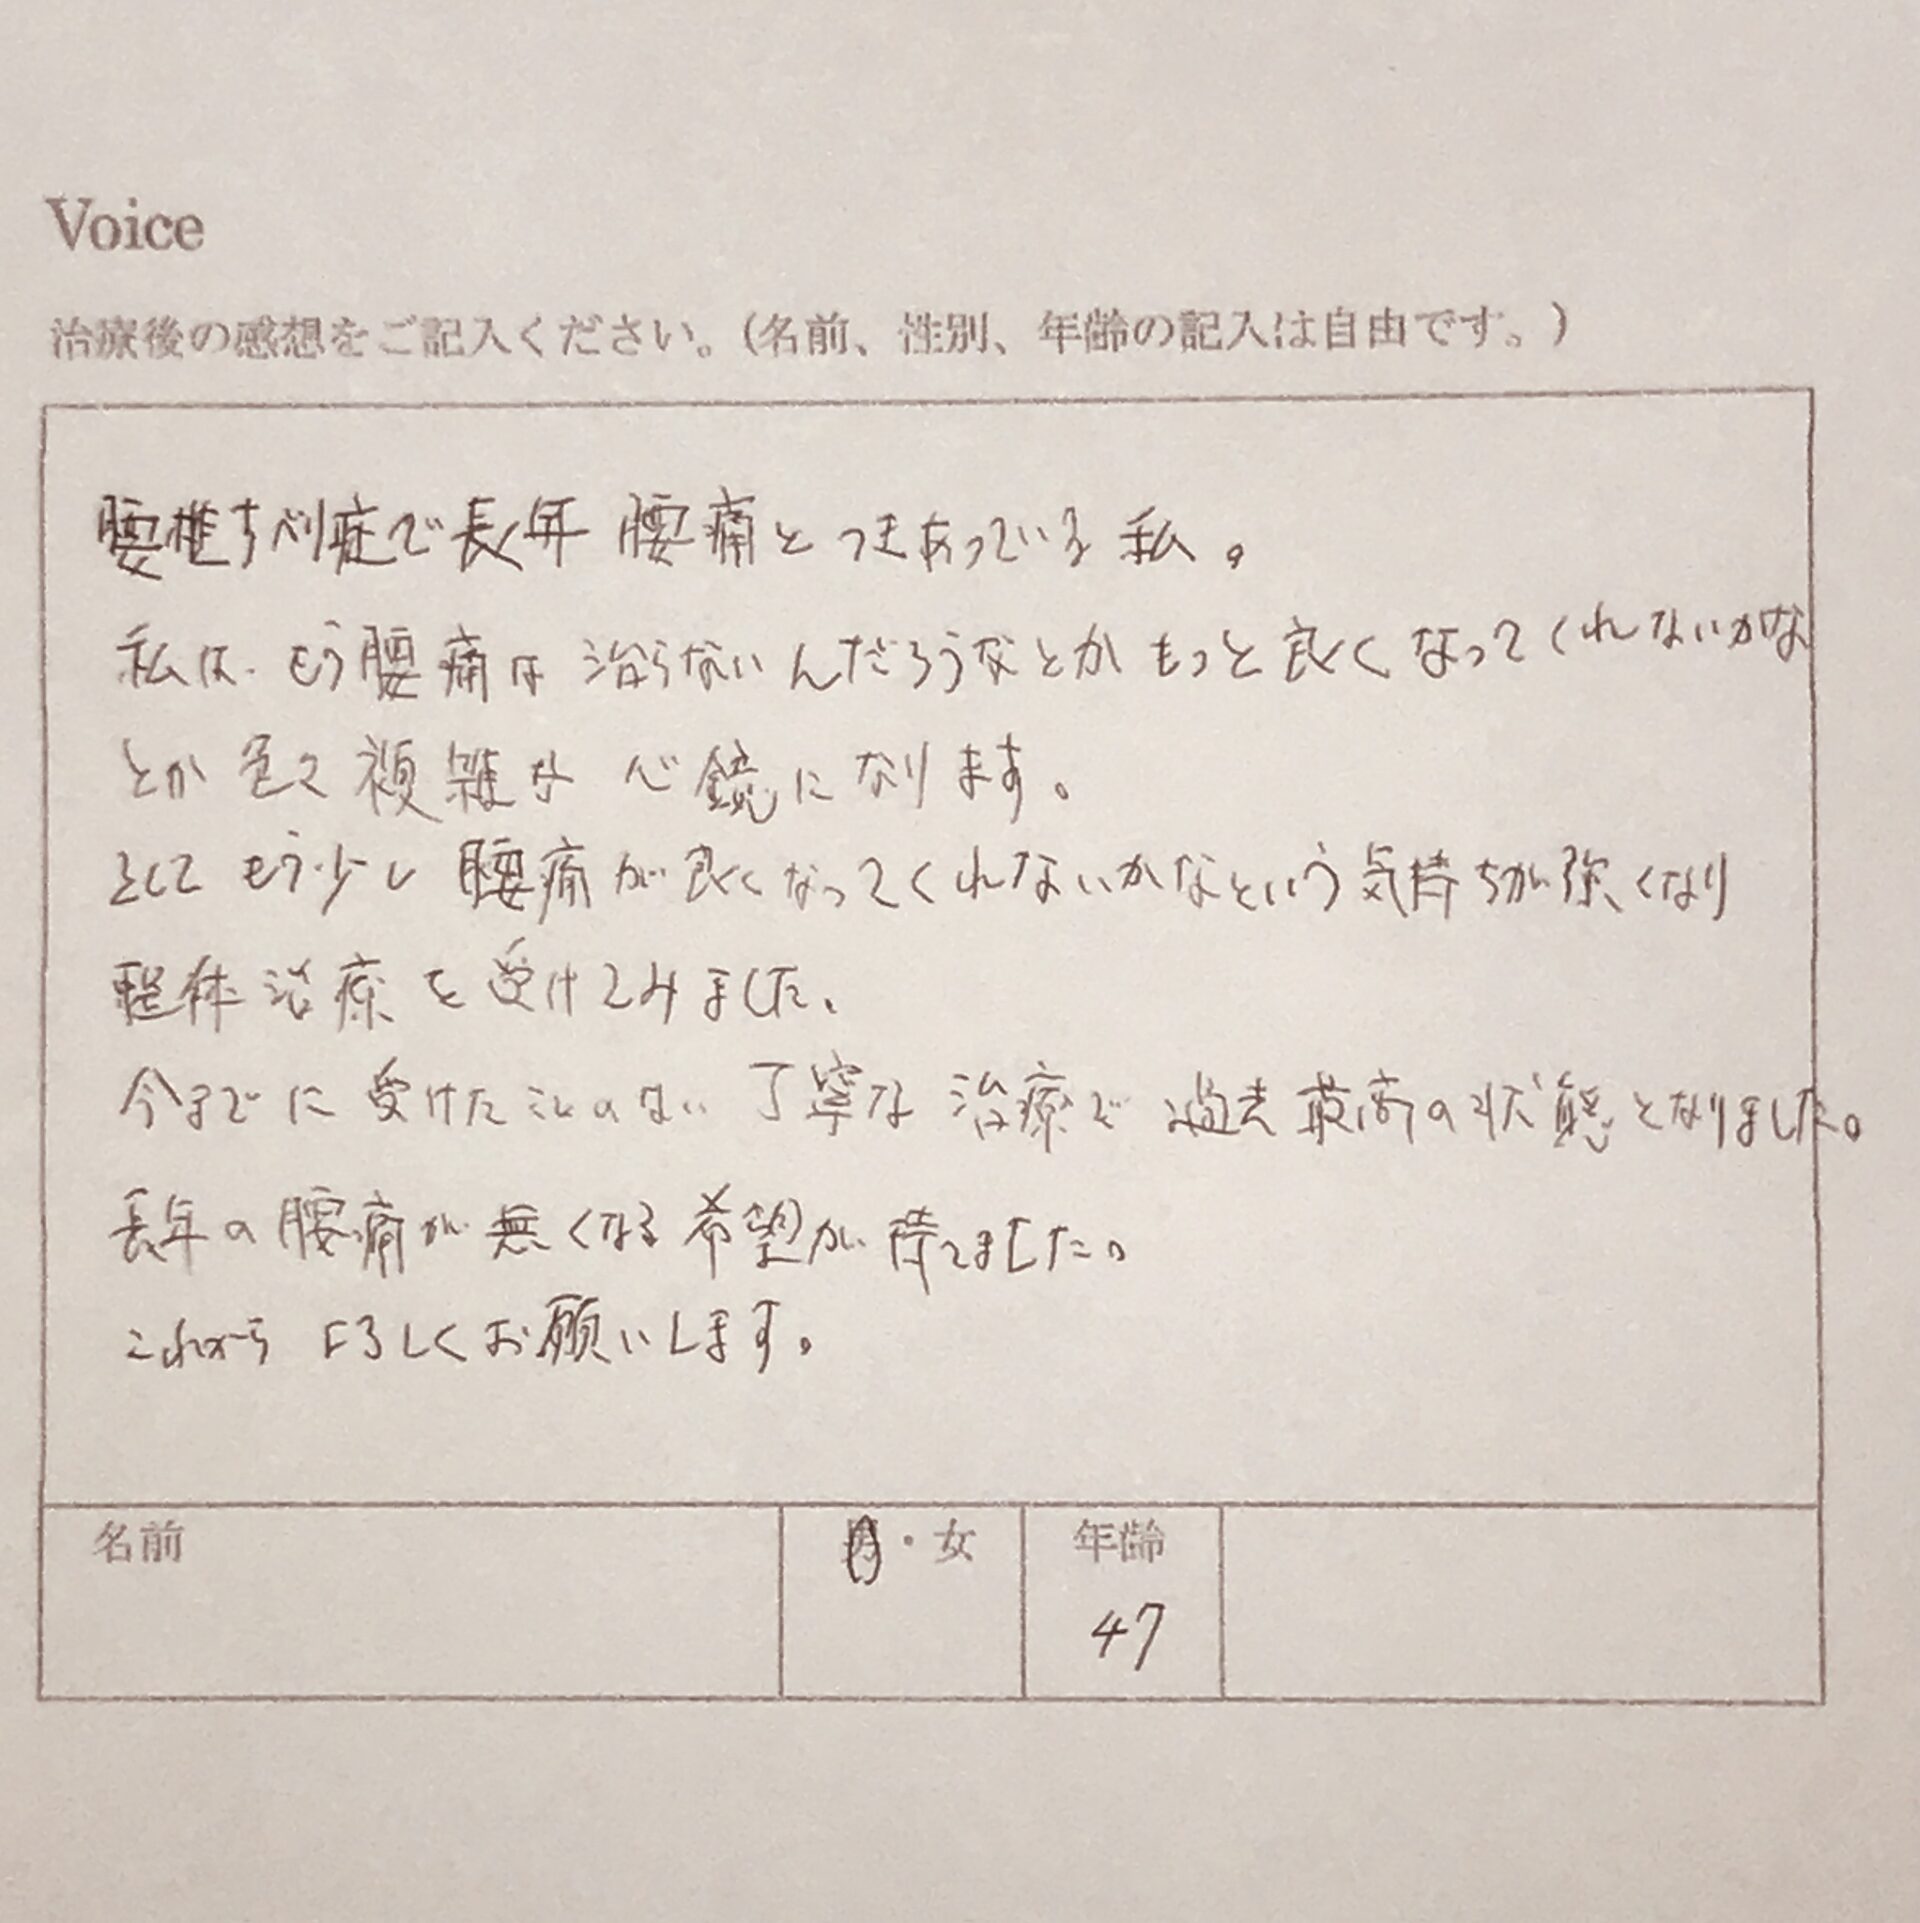 Voice
治療後の感想をご記入ください。(名前、性別、年齢の記入は自由です。)
腰椎すべり症で長年 腰痛とつきあっている私。
私は、もう腰痛は治らないんだろうなとかもっと良くなってくれないかな
とか色々複雑な心鏡になります。
そしてもう少し腰痛が良くなってくれないかなという気持ちが強くなり
整体治療を受けてみました、
今までに受けたことのない丁寧な治療で過去最高の状態となりました。
長年の腰痛が無くなる希望が持てました。
これからよろしくお願いします。
名前 男・女 年齢
47